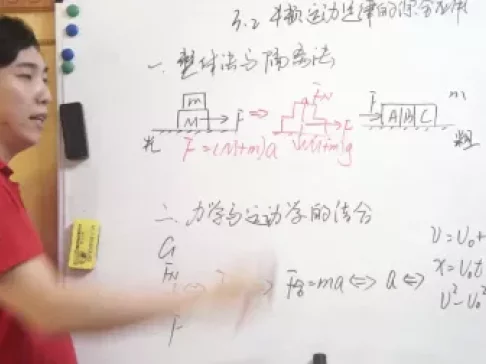 3.2 牛顿运动定律的综合应用
一、整体法与隔离法
m
M
F
F=(M+m)a
⇒
F_N
F
(M+m)g
F
A B C
m
粗
二、力学与运动学的结合
G
F_N
F
F合=ma⇔a⇔
v=v₀+
x=v₀t
v²-v₀²